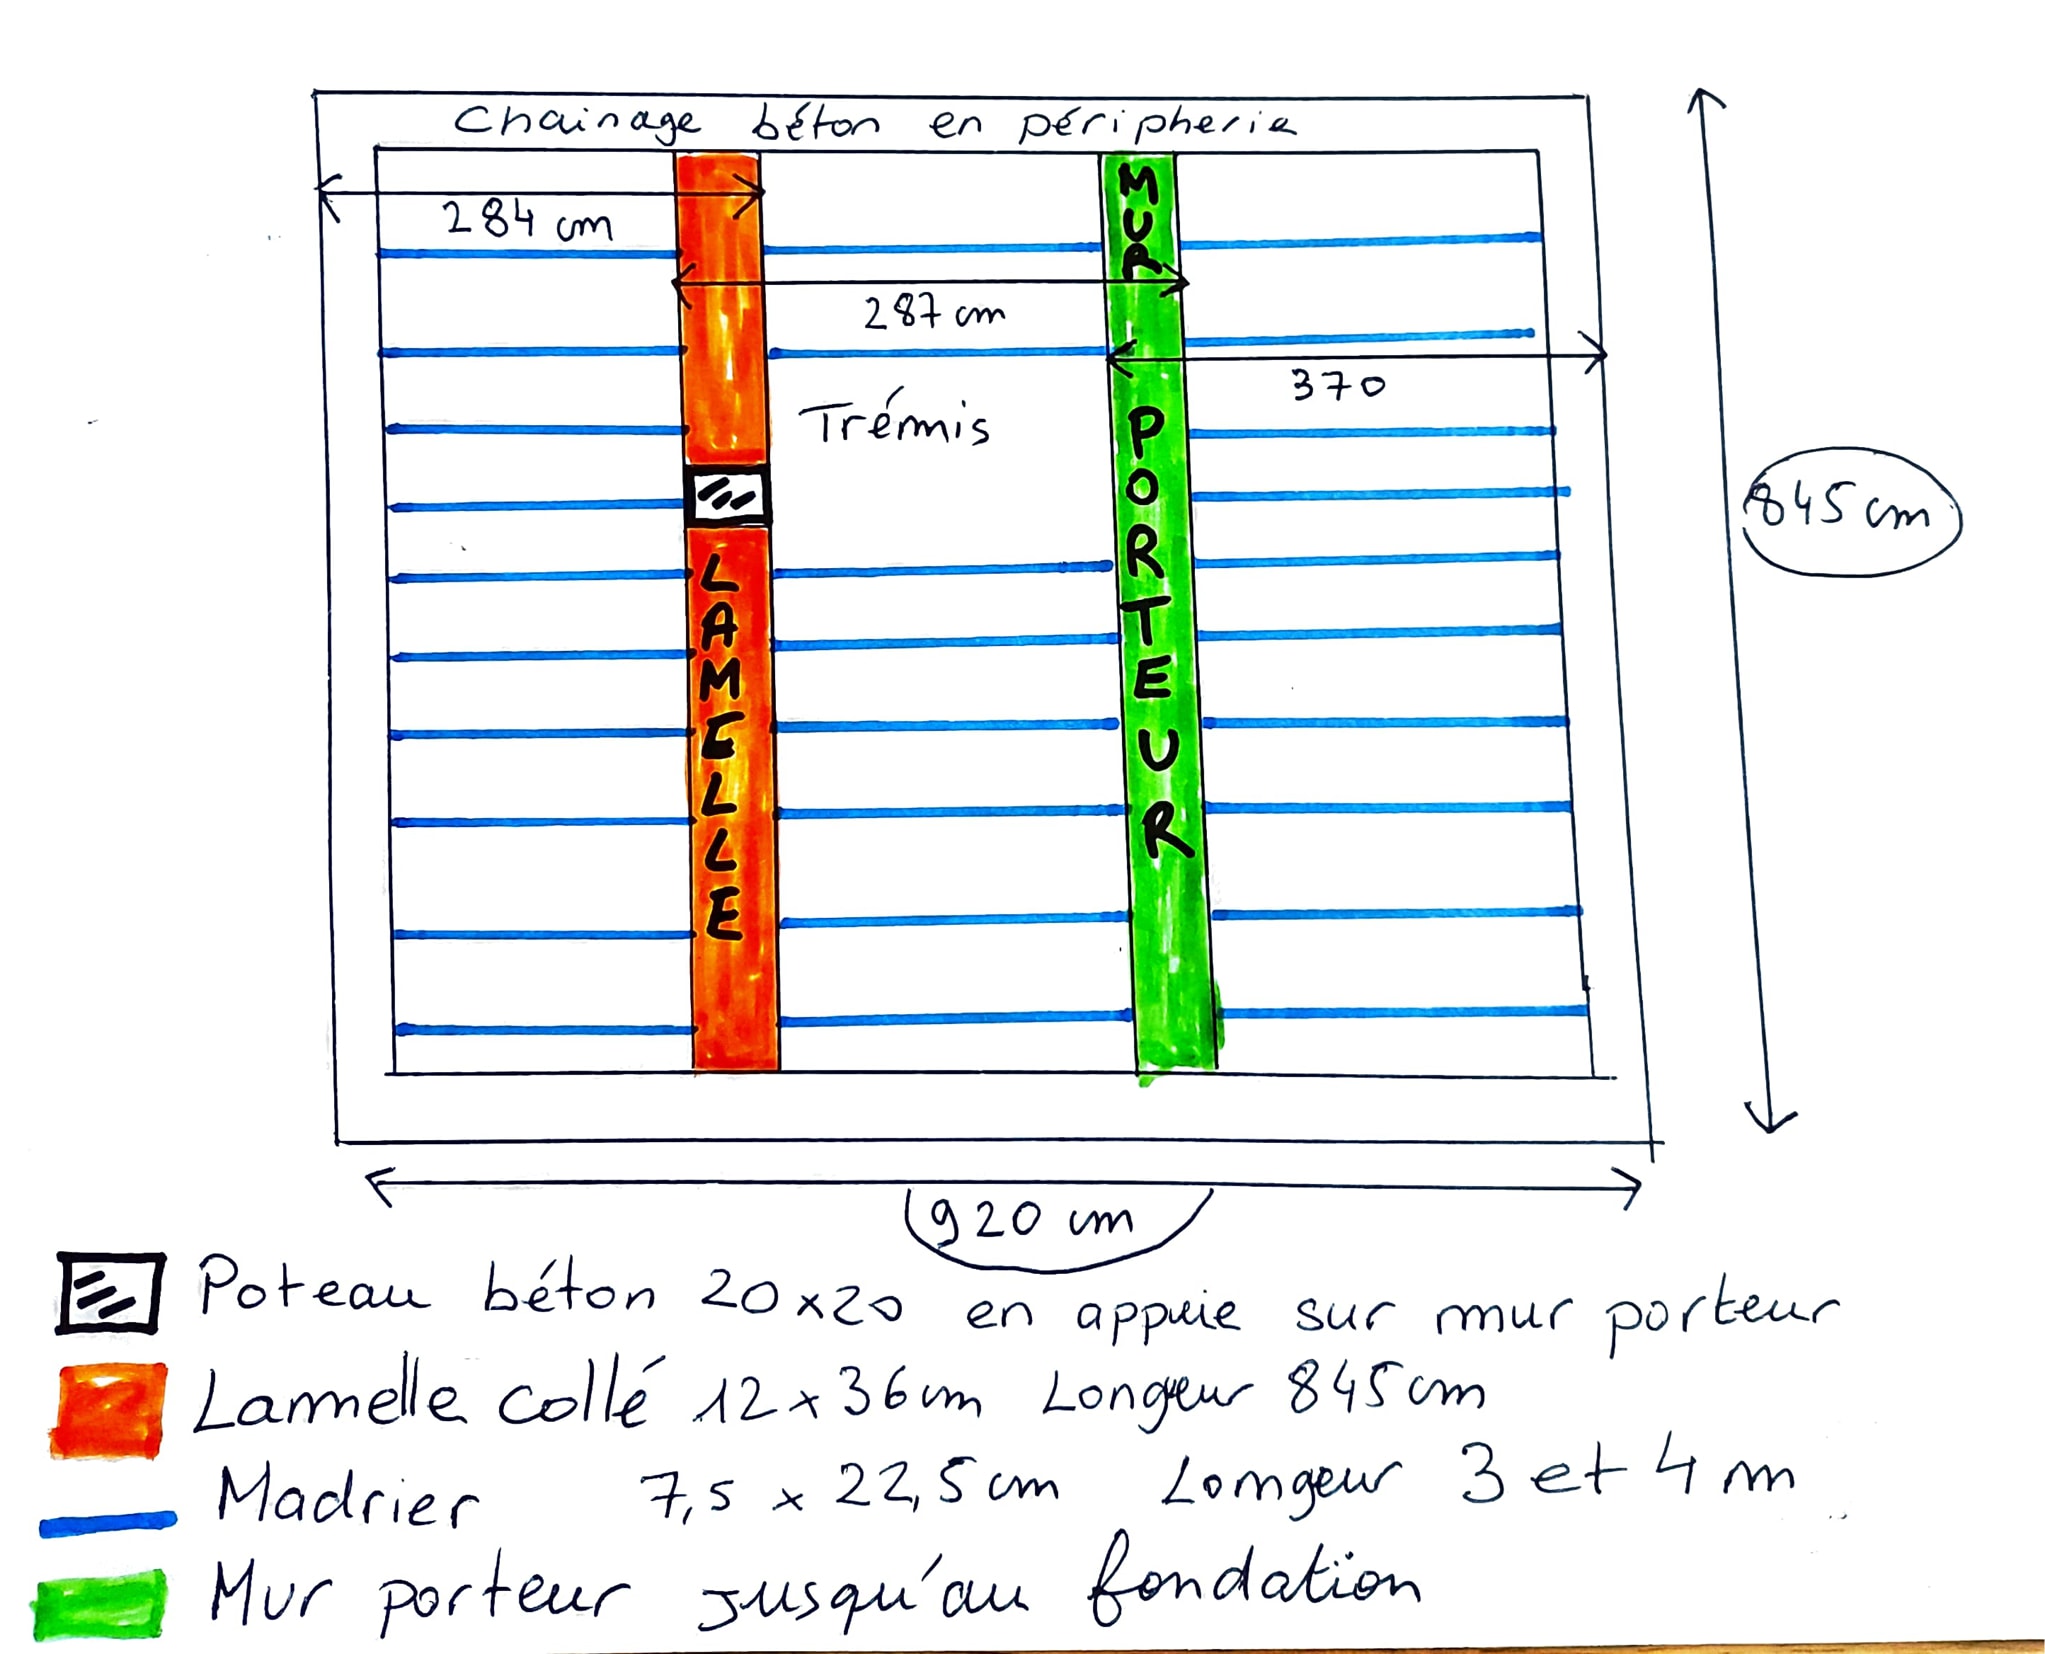 Chainage béton en péripherie
284 cm
287 cm
370
Trémis
MUR PORTEUR
LAMELLE
845 cm
920 cm
Poteau béton 20x20 en appuie sur mur porteur
Lamelle collé 12 x 36 cm Longeur 845 cm
Madrier 7,5 x 22,5 cm Longeur 3 et 4 m
Mur porteur jusqu'au fondation